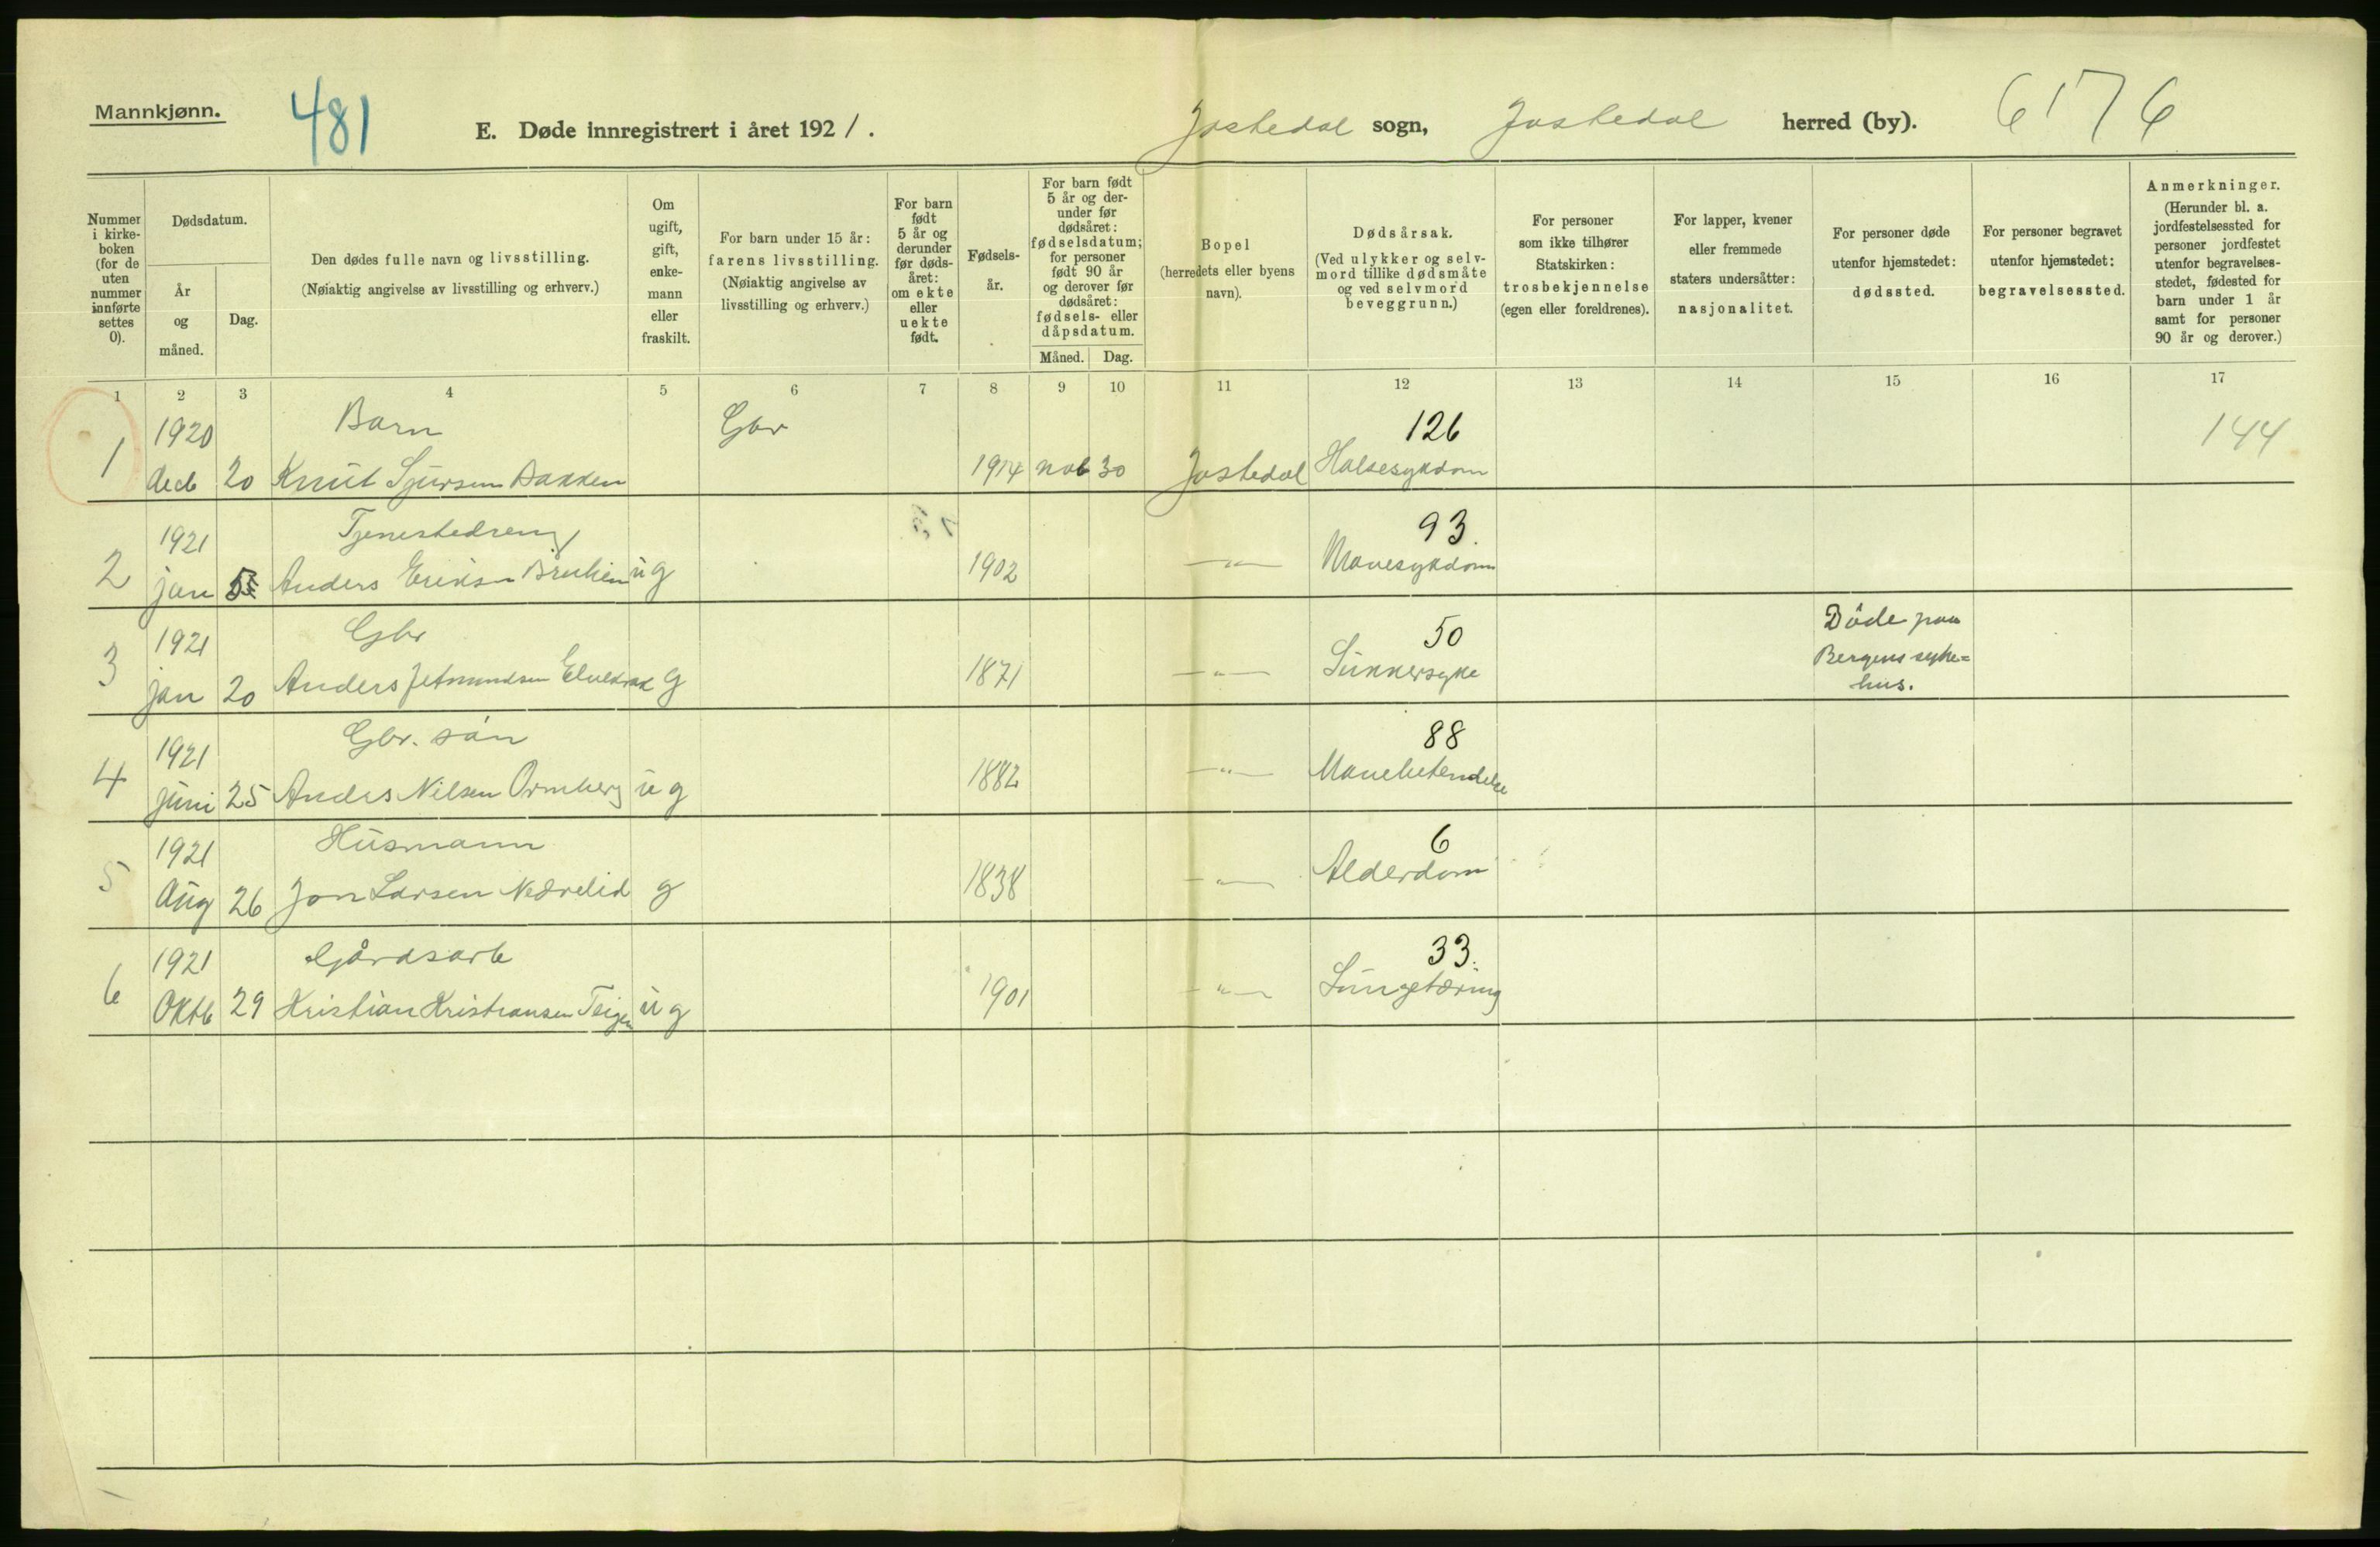 Mannkjønn.
481
E. Døde innregistrert i året 1921.
Jostedal sogn, Jostedal herred (by).
6176
Nummer i kirkeboken (for de uten nummer innførte settes 0).
Dødsdatum.
År og måned.
Dag.
Den dødes fulle navn og livsstilling.
(Nøiaktig angivelse av livsstilling og erhverv.)
Om ugift, gift, enkemann eller fraskilt.
For barn under 15 år: farens livsstilling.
(Nøiaktig angivelse av livsstilling og erhverv.)
For barn født 5 år og derunder før dødsåret: om ekte eller uekte født.
Fødselsår.
For barn født 5 år og derunder før dødsåret: fødselsdatum; for personer født 90 år og derover før dødsåret: fødsels- eller dåpsdatum.
Måned.
Dag.
Bopel
(herredets eller byens navn).
Dødsårsak.
(Ved ulykker og selvmord tillike dødsmåte og ved selvmord beveggrunn.)
For personer som ikke tilhører Statskirken: trosbekjennelse (egen eller foreldrenes).
For lapper, kvener eller fremmede staters undersåtter: nasjonalitet.
For personer døde utenfor hjemstedet: dødssted.
For personer begravet utenfor hjemstedet: begravelsessted.
Anmerkninger.
(Herunder bl. a. jordfestelsessted for personer jordfestet utenfor begravelsesstedet, fødested for barn under 1 år samt for personer 90 år og derover.)
1 2 3 4 5 6 7 8 9 10 11 12 13 14 15 16 17
1920 Barn Gbr 126 144
1 decb 20 Knut Sjursen Bakken 1914 novb 30 Jostedal Halsesykdom
1921 Tjenestedreng 93
2 jan 5 Anders Eriksen Bruheim ug 1902 —„— Mavesykdom
1921 Gbr 50 Döde paa
3 jan 20 Anders Jetmundsen Elvekrok g 1871 —„— Sukkersyke Bergens syke=
hus.
1921 Gbr. søn 88
4 juni 25 Anders Nilsen Ormberg ug 1882 —„— Mavebetendelse
1921 Husmann 6
5 Aug 26 Jon Larsen Nedrelid g 1838 —„— Alderdom
1921 Gårdsarb 33.
6 Oktb 29 Kristian Kristiansen Teigen ug 1901 —„— Lungetæring